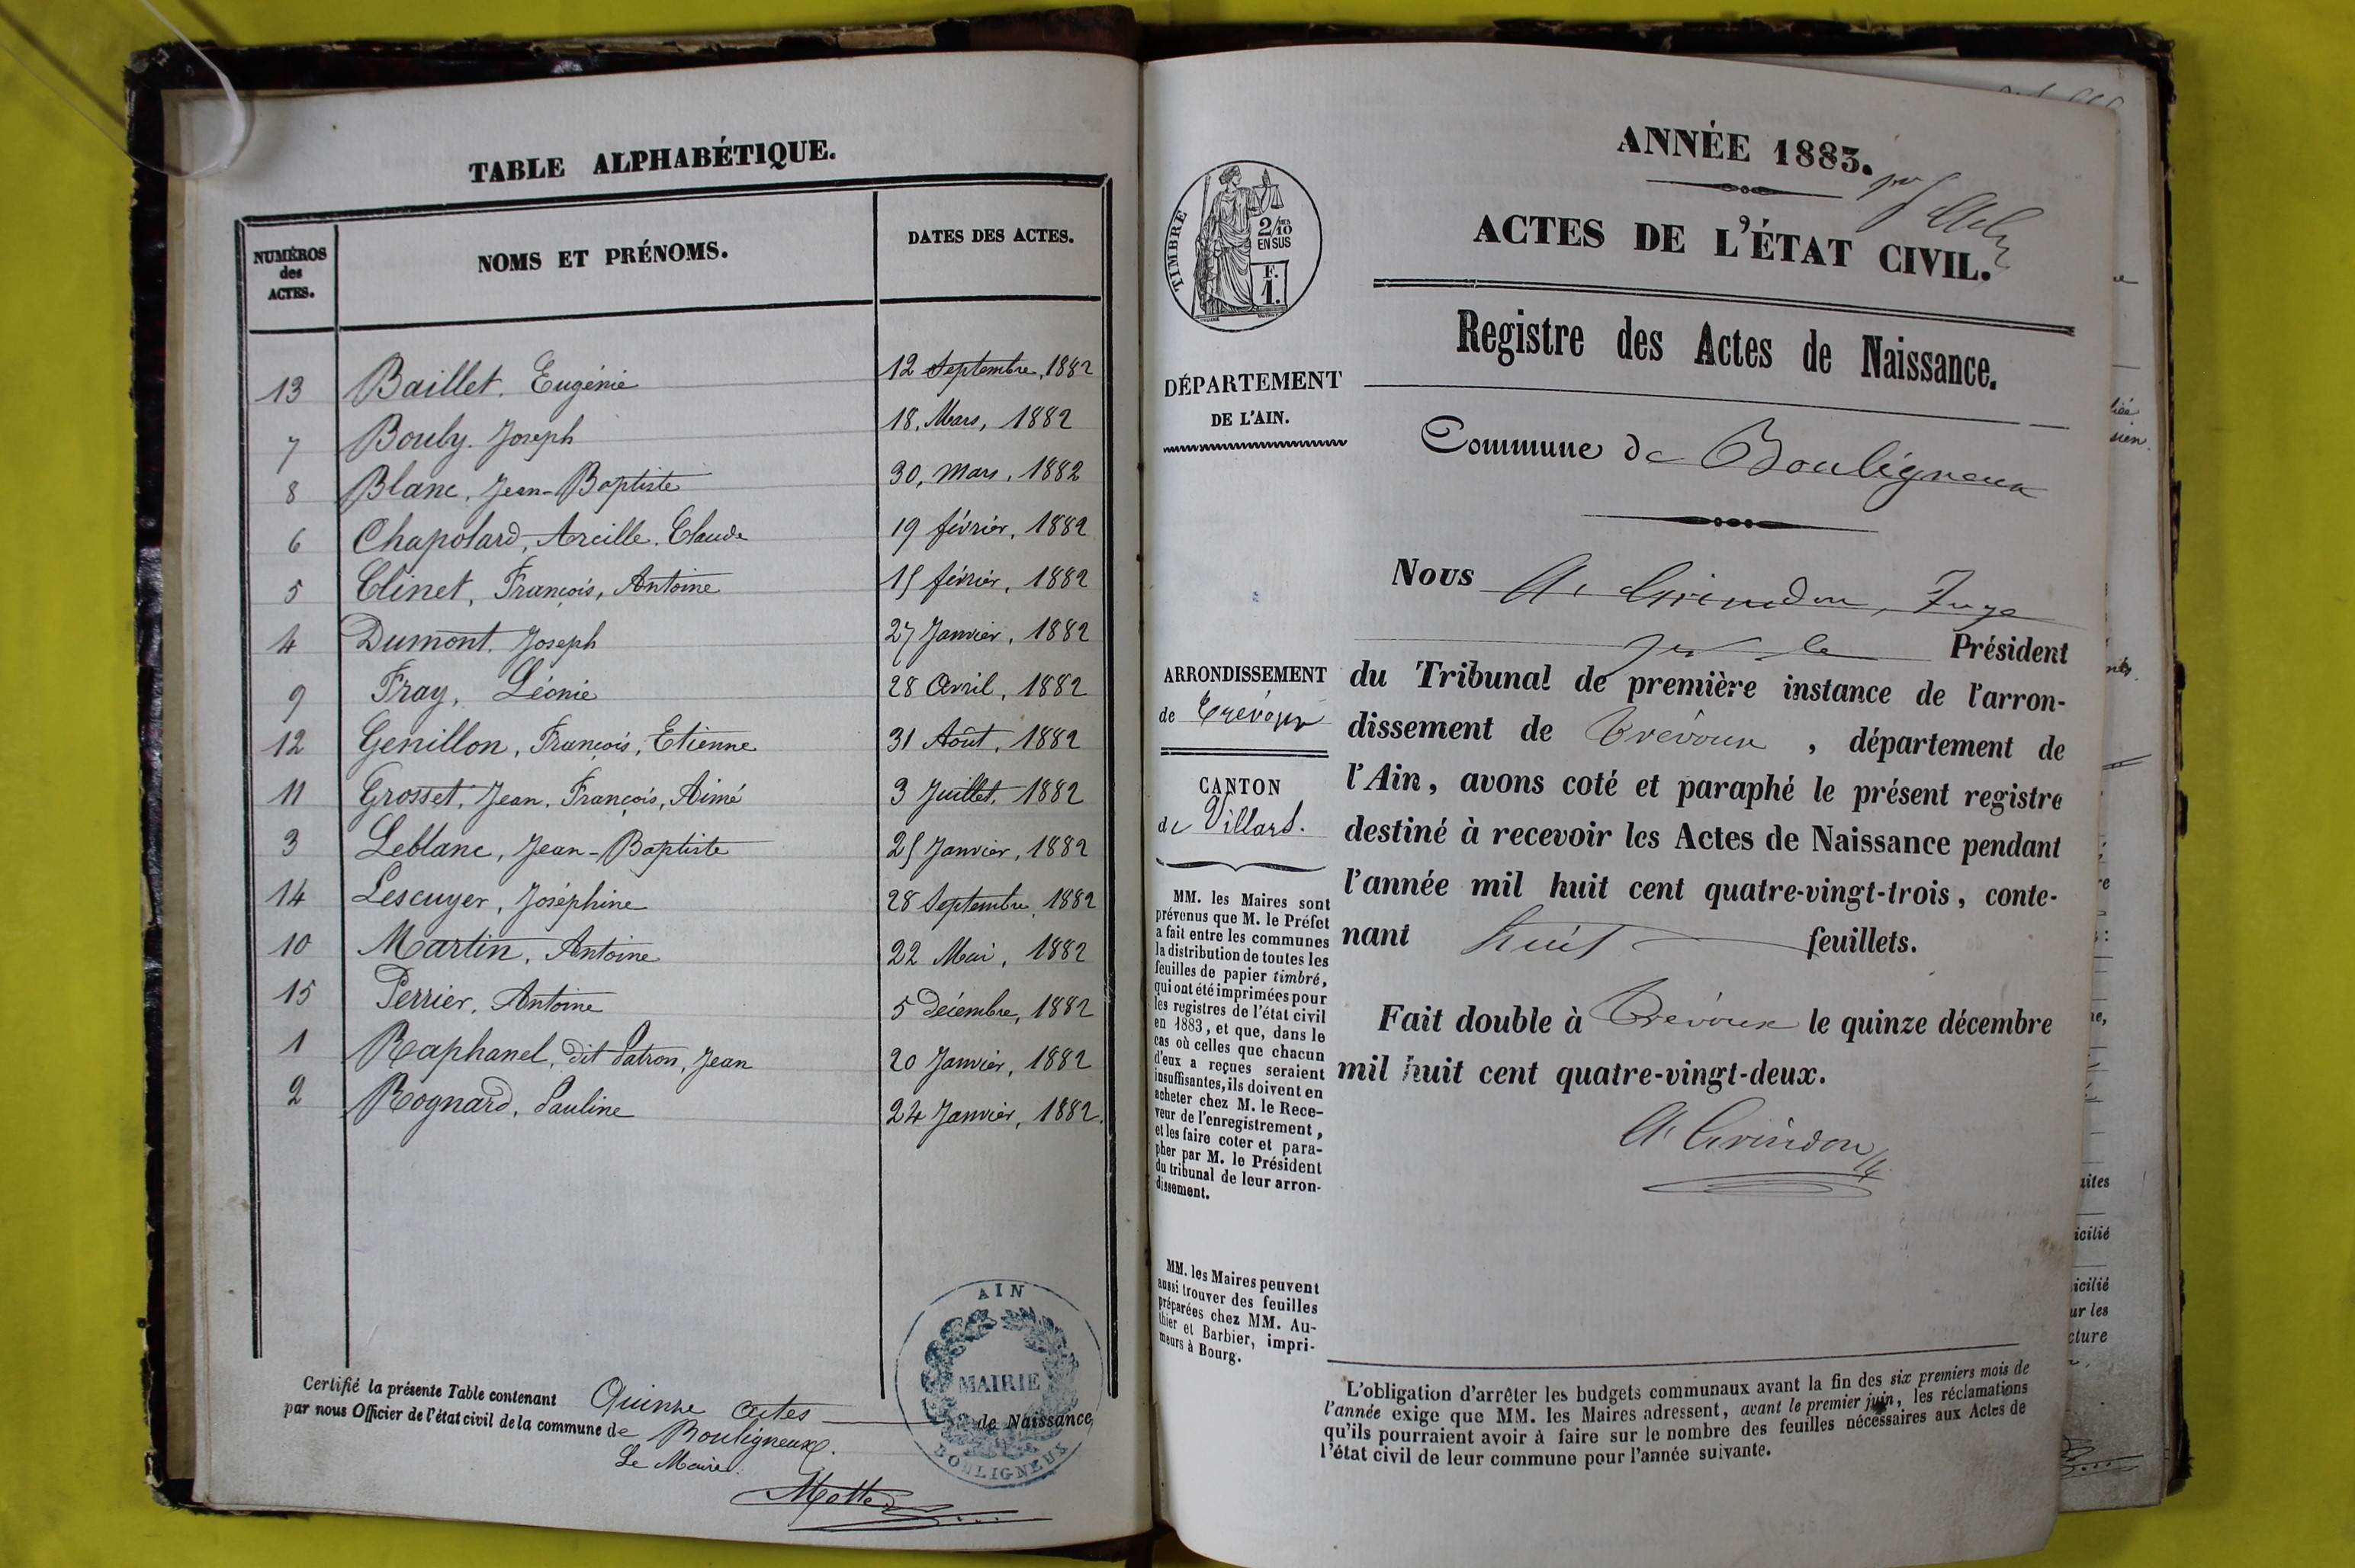 TABLE ALPHABÉTIQUE.
NUMÉROS des ACTES.
NOMS ET PRÉNOMS.
DATES DES ACTES.
13 Baillet. Eugénie 12 Septembre, 1882
7 Bouly. Joseph 18. Mars, 1882
8 Blanc, Jean-Baptiste 30, mars, 1882
6 Chapolard, Arcille. Claude 19 février, 1882
5 Clinet, François, Antoine 15 février, 1882
4 Dumont. Joseph 27 Janvier, 1882
9 Fray, Léonie 28 Avril, 1882
12 Genillon, François, Etienne 31 Août, 1882
11 Grosset, Jean, François, Aimé 3 Juillet, 1882
3 Leblanc, Jean-Baptiste 25 Janvier, 1882
14 Lescuyer, Joséphine 28 Septembre, 1882
10 Martin, Antoine 22 Mai, 1882
15 Perrier, Antoine 5 Décembre, 1882
1 Raphanel, dit Patron, Jean 20 Janvier, 1882
2 Rognard, Pauline 24 Janvier, 1882.
Certifié la présente Table contenant Quinze actes de Naissance,
par nous Officier de l'état civil de la commune de Bouligneux.
Le Maire.
AIN
MAIRIE
BOULIGNEUX
ANNÉE 1883.
ACTES DE L'ÉTAT CIVIL.
TIMBRE
2/10
EN SUS
F.
1.
Registre des Actes de Naissance.
DÉPARTEMENT
DE L'AIN.
Commune de Bouligneux
Nous A. Grindon, Juge
Président
ARRONDISSEMENT
de Trévoux
CANTON
de Villars.
du Tribunal de première instance de l'arron-
dissement de Trévoux, département de
l'Ain, avons coté et paraphé le présent registre
destiné à recevoir les Actes de Naissance pendant
l'année mil huit cent quatre-vingt-trois, conte-
nant huit feuillets.
Fait double à Trévoux le quinze décembre
mil huit cent quatre-vingt-deux.
A. Grindon
MM. les Maires sont
prévenus que M. le Préfet
a fait entre les communes
la distribution de toutes les
feuilles de papier timbré,
qui ont été imprimées pour
les registres de l'état civil
en 1883, et que, dans le
cas où celles que chacun
d'eux a reçues seraient
insuffisantes, ils doivent en
acheter chez M. le Rece-
veur de l'enregistrement,
et les faire coter et para-
pher par M. le Président
du tribunal de leur arron-
dissement.
MM. les Maires peuvent
aussi trouver des feuilles
préparées chez MM. Au-
thier et Barbier, impri-
meurs à Bourg.
L'obligation d'arrêter les budgets communaux avant la fin des six premiers mois de
l'année exige que MM. les Maires adressent, avant le premier juin, les réclamations
qu'ils pourraient avoir à faire sur le nombre des feuilles nécessaires aux Actes de
l'état civil de leur commune pour l'année suivante.